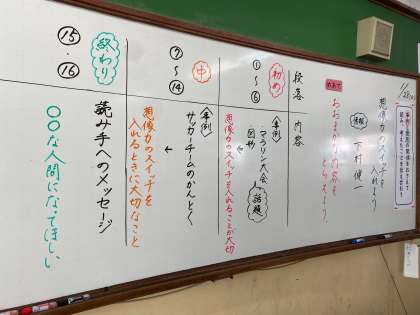 想像力のスイッチを
入れよう
下村 健一
めあて
おおまかな内容を
とらえよう。
段落
内容
初め
①
〜
⑥
〈事例〉
マラソン大会
図形
話題
想像力のスイッチを入れることが大切
中
⑦
〜
⑭
〈事例〉
サッカーチームのかんとく
想像力のスイッチを
入れるときに大切なこと
終わり
⑮
・
⑯
読み手へのメッセージ
○○な人間になってほしい